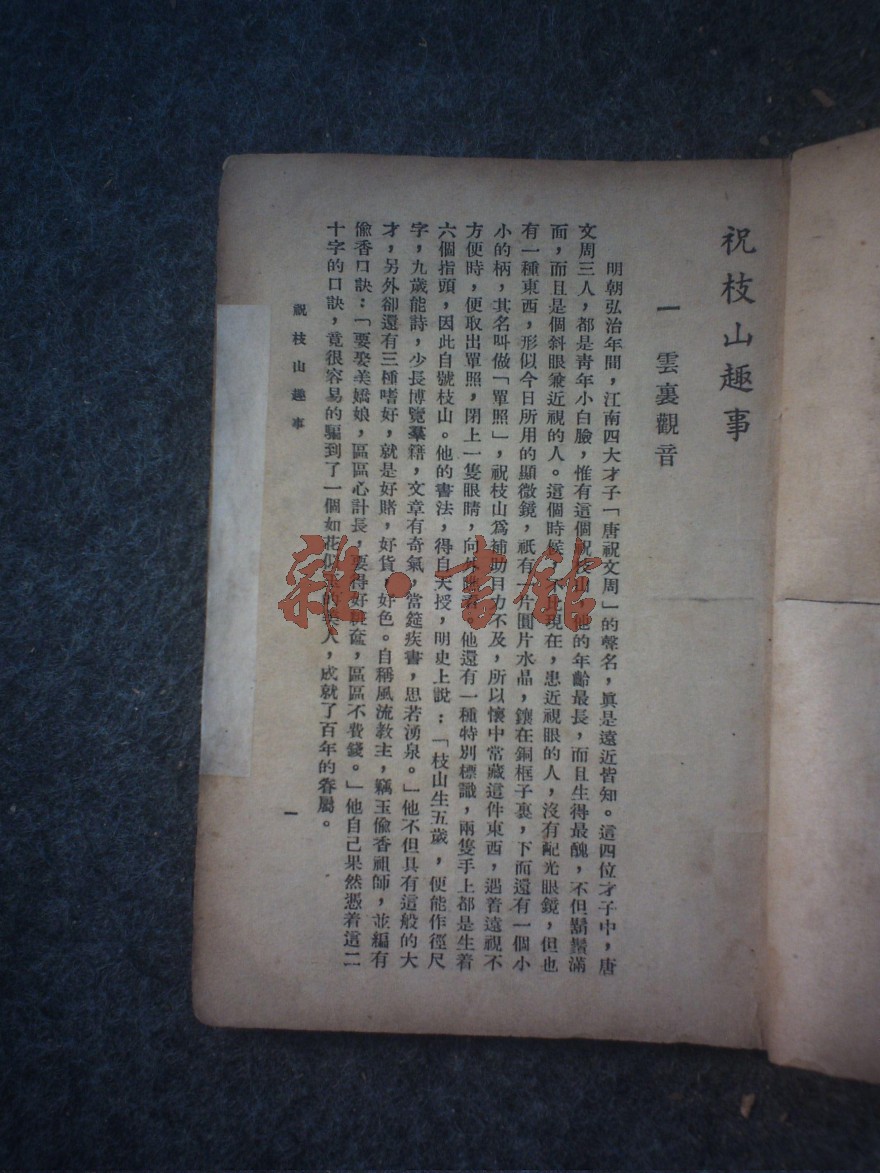 祝枝山趣事
一 雲裏觀音
明朝弘治年間，江南四大才子「唐祝文周」的聲名，眞是遠近皆知。這四位才子中，唐
文周三人，都是靑年小白臉，惟有這個祝枝山，他的年齡最長，而且生得最醜，不但鬍鬚滿
面，而且是個斜眼兼近視的人。這個時候，不比現在，患近視眼的人，沒有配光眼鏡，但也
有一種東西，形似今日所用的顯微鏡，祇有一片圓片水晶，鑲在銅框子裏，下面還有一個小
小的柄，其名叫做「單照」，祝枝山爲補助目力不及，所以懷中常藏這件東西，遇着遠視不
方便時，便取出單照，閉上一隻眼睛，向外 他還有一種特別標識，兩隻手上都是生着
六個指頭，因此自號枝山。他的書法，得自天授，明史上說：「枝山生五歲，便能作徑尺
字，九歲能詩，少長博覽羣籍，文章有奇氣，當筵疾書，思若湧泉。」他不但具有這般的大
才，另外卻還有三種嗜好，就是好賭，好貨，好色。自稱風流敎主，竊玉偸香祖師，並編有
偸香口訣：「要娶美嬌娘，區區心計長，要得好 奩，區區不費錢。」他自己果然憑着這二
十字的口訣，竟很容易的騙到了一個如花似 的美人，成就了百年的眷屬。
祝枝山趣事
一
雜·書館